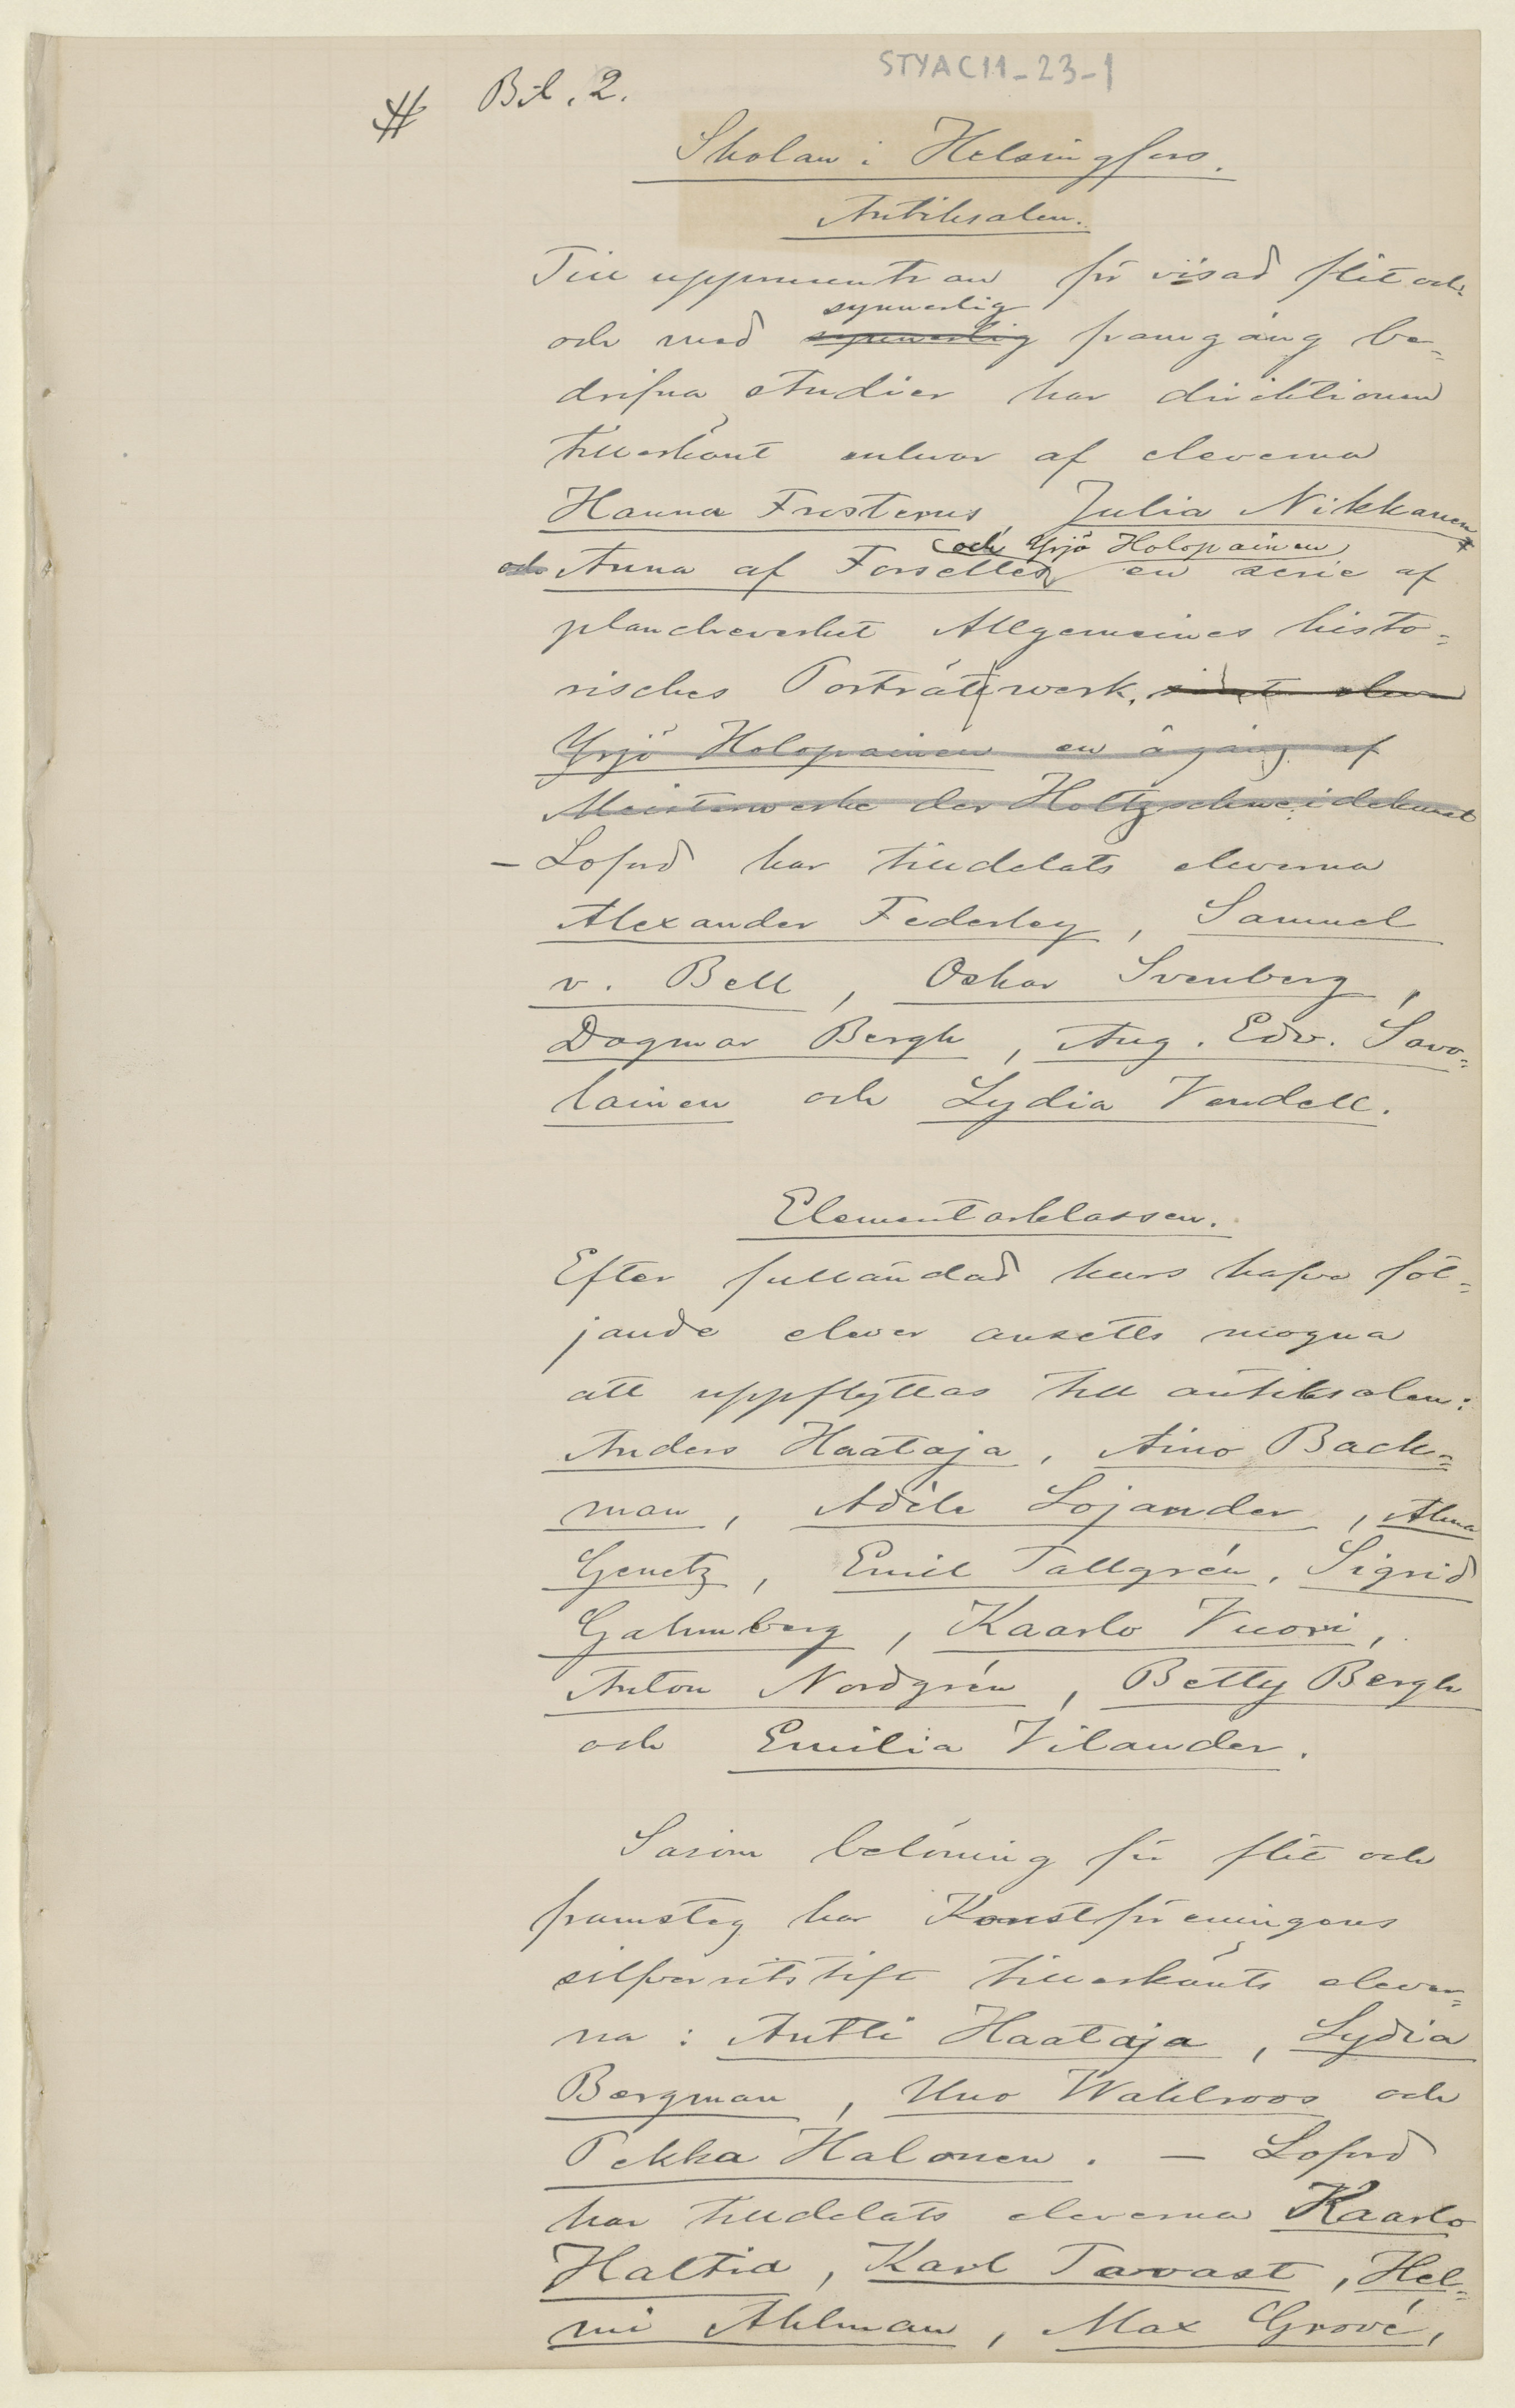 STYA C11-23-1
# Bil. 2.
Skolan i Helsingfors.
Antiksalen.
Till uppmuntran för visad flit och
synnerlig
och med synnerlig framgång be-
drifna studier har direktionen
tillerkänt enhvar af eleverna
Hanna Frosterus, Julia Nikkanen
och Yrjö Holopainen
och Anna af Forselles en serie af
plancheverket Allgemeines histo-
risches Porträtwerk, samt eleven
Yrjö Holopainen en årgång af
Meisterwerke der Holtzschneidekunst
- Loford har tilldelats eleverna
Alexander Federley, Samuel
v. Bell, Oskar Svenberg,
Dagmar Bergh, Aug. Edv. Savo-
lainen och Lydia Vendell.
Elementarklassen.
Efter fulländad kurs hafva föl-
jande elever ansetts mogna
att uppflyttas till antiksalen:
Anders Haataja, Aino Back-
man, Adèle Lojander, Alma
Genetz, Emil Tallgrén, Sigrid
Gahmberg, Kaarlo Vuori,
Anton Nordgrén, Betty Bergh
och Emilia Vilander.
Såsom belöning för flit och
framsteg har Konstföreningens
silfverritstift tillerkänts elever-
na: Antti Haataja, Lydia
Bergman, Uno Wahlroos och
Pekka Halonen. - Loford
har tilldelats eleverna Kaarlo
Haltia, Karl Tavast, Hel-
mi Ahlman, Max Grové,